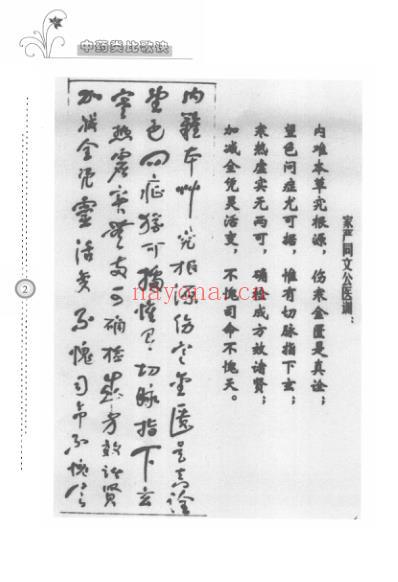 中药类比歌诀
家严同文公医训：
内难本草究根源，伤寒金匮是真诠；
望色问症尤可据，惟有切脉指下玄；
寒热虚实无两可，确检成方效诸贤；
加减全凭灵活变，不愧司命不愧天。
内難本艸究根源伤寒金匮是真诠
望色问症犹可据惟有切脉指下玄
寒热虚实无两可确检成方效诸贤
加减全凭靈活变不愧司命不愧天
2
nayona.cn